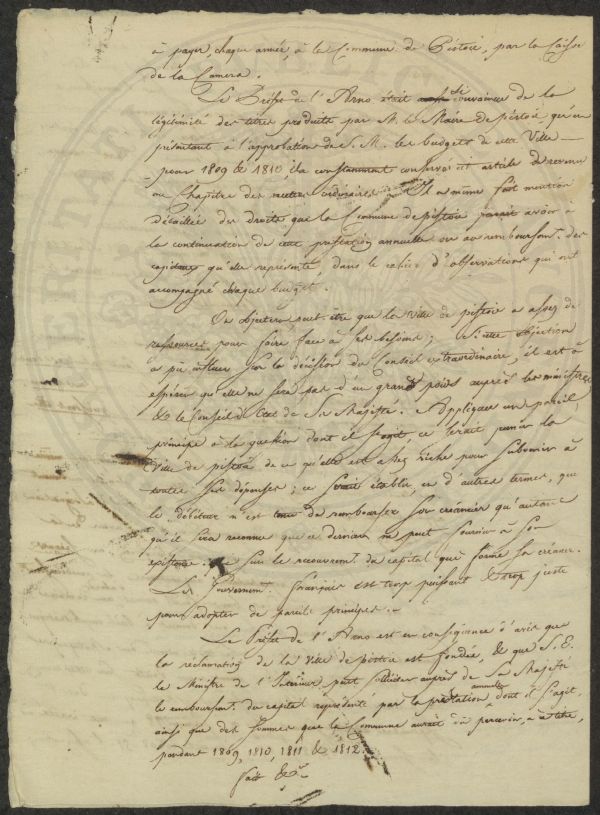 à payer, chaque année, à la Commune de Pistoie, par la Caisse
de la Camera.
Le Préfet de l'Arno était si convaincu de la
légitimité des titres produits par M. le Maire de pistoie, qu'en
présentant à l'approbation de S. M. les budgets de cette Ville
pour 1809 & 1810, il a constamment conservé cet article de revenu
au Chapitre des recettes ordinaires. Il a même fait mention
détaillée du droit que la Commune de pistoie parait avoir à
la continuation de cette préstation annuelle ou au remboursemt. des
capitaux qu'elle représente, dans le cahier d'observations qui ont
accompagné chaque budget.
On objectera peut-être que la ville de pistoie a assez de
ressources pour faire face à ses besoins; si cette objection
a pu influer sur la décision du Conseil extraordinaire, il est à
espérer qu'elle ne sera pas d'un grand poids auprès les ministres
& le Conseil d'Etat de Sa Majesté. Appliquer un pareil
principe à la question dont il s'agit, ce serait punir la
Ville de pistoie de ce qu'elle est assez riche pour subvenir à
toutes ses dépenses; ce serait établir, en d'autres termes, que
le débiteur n'est tenu de rembourser son créancier qu'autant
qu'il sera reconnu que ce dernier ne peut fournir à son
existence que sur le recouvremt. du capital que forme sa créance.
Le Gouvernemt. français est trop puissant & trop juste
pour adopter de pareils principes.
Le Préfet de l'Arno est en conséquence d'avis que
la réclamation de la Ville de pistoie est fondée, & que S. E.
le Ministre de l'Intérieur peut solliciter auprès de Sa Majesté
le remboursemt. du capital représenté par la prestation annuelle dont il s'agit,
ainsi que des sommes que la Commune aurait dû percevoir, à ce titre,
pendant 1809, 1810, 1811 & 1812.
fait &a.